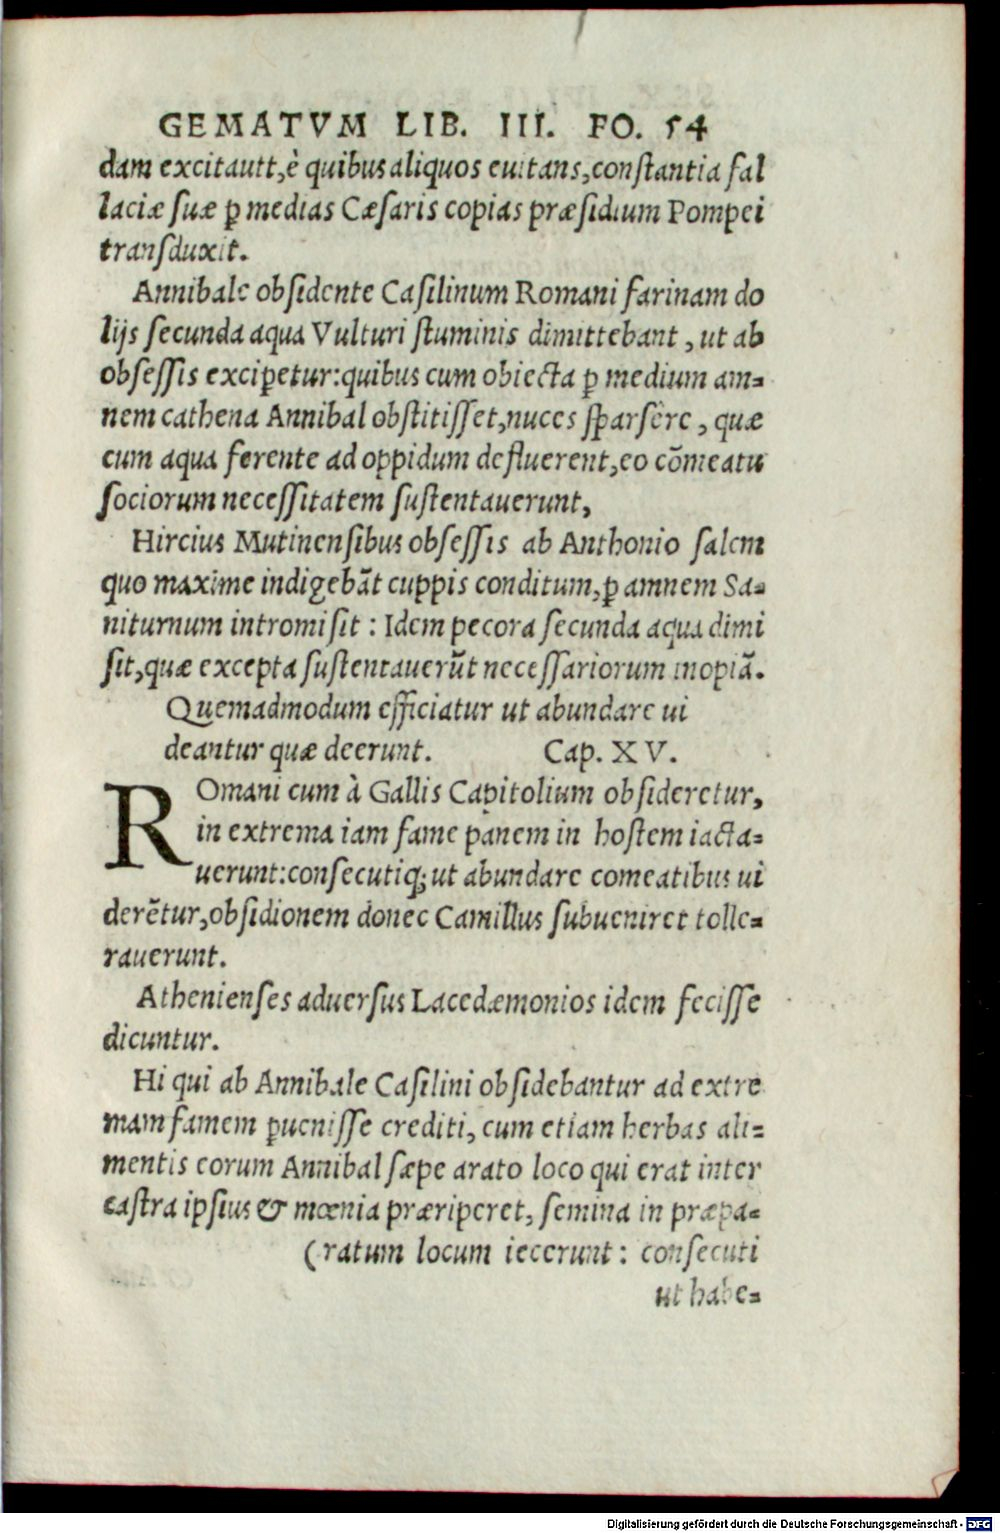 GEMATVM LIB. III. FO. 54
dam excitautt,è quibus aliquos euitans,constantia fal
laciæ suæ ꝑ medias Cæsaris copias præsidium Pompei
transduxit.
Annibale obsidente Casilinum Romani farinam do
lijs secunda aqua Vulturi stuminis dimittebant , ut ab
obsessis exciperetur:quibus cum obiecta ꝑ medium am=
nem cathena Annibal obstitisset,nuces sparsêre , quæ
cum aqua ferente ad oppidum defluerent,eo cõmeatu
sociorum necessitatem sustentauerunt,
Hircius Mutinensibus obsessis ab Anthonio salem
quo maxime indigebãt cuppis conditum,ꝑ amnem Sa=
niturnum intromisit : Idem pecora secunda aqua dimi
sit,quæ excepta sustentauerũt necessariorum inopiã.
Quemadmodum efficiatur ut abundare ui
deantur quæ deerunt. Cap. X V.
ROmani cum à Gallis Capitolium obsideretur,
in extrema iam fame panem in hostem iacta=
uerunt:consecutiq; ut abundare comeatibus ui
derẽtur,obsidionem donec Camillus subueniret tolle=
rauerunt.
Athenienses aduersus Lacedæmonios idem fecisse
dicuntur.
Hi qui ab Annibale Casilini obsidebantur ad extre
mam famem ꝑuenisse crediti, cum etiam herbas ali=
mentis eorum Annibal sæpe arato loco qui erat inter
castra ipsius & mœnia præriperet, semina in præpa=
(ratum locum iecerunt : consecuti
ut habe=
Digitalisierung gefördert durch die Deutsche Forschungsgemeinschaft - DFG